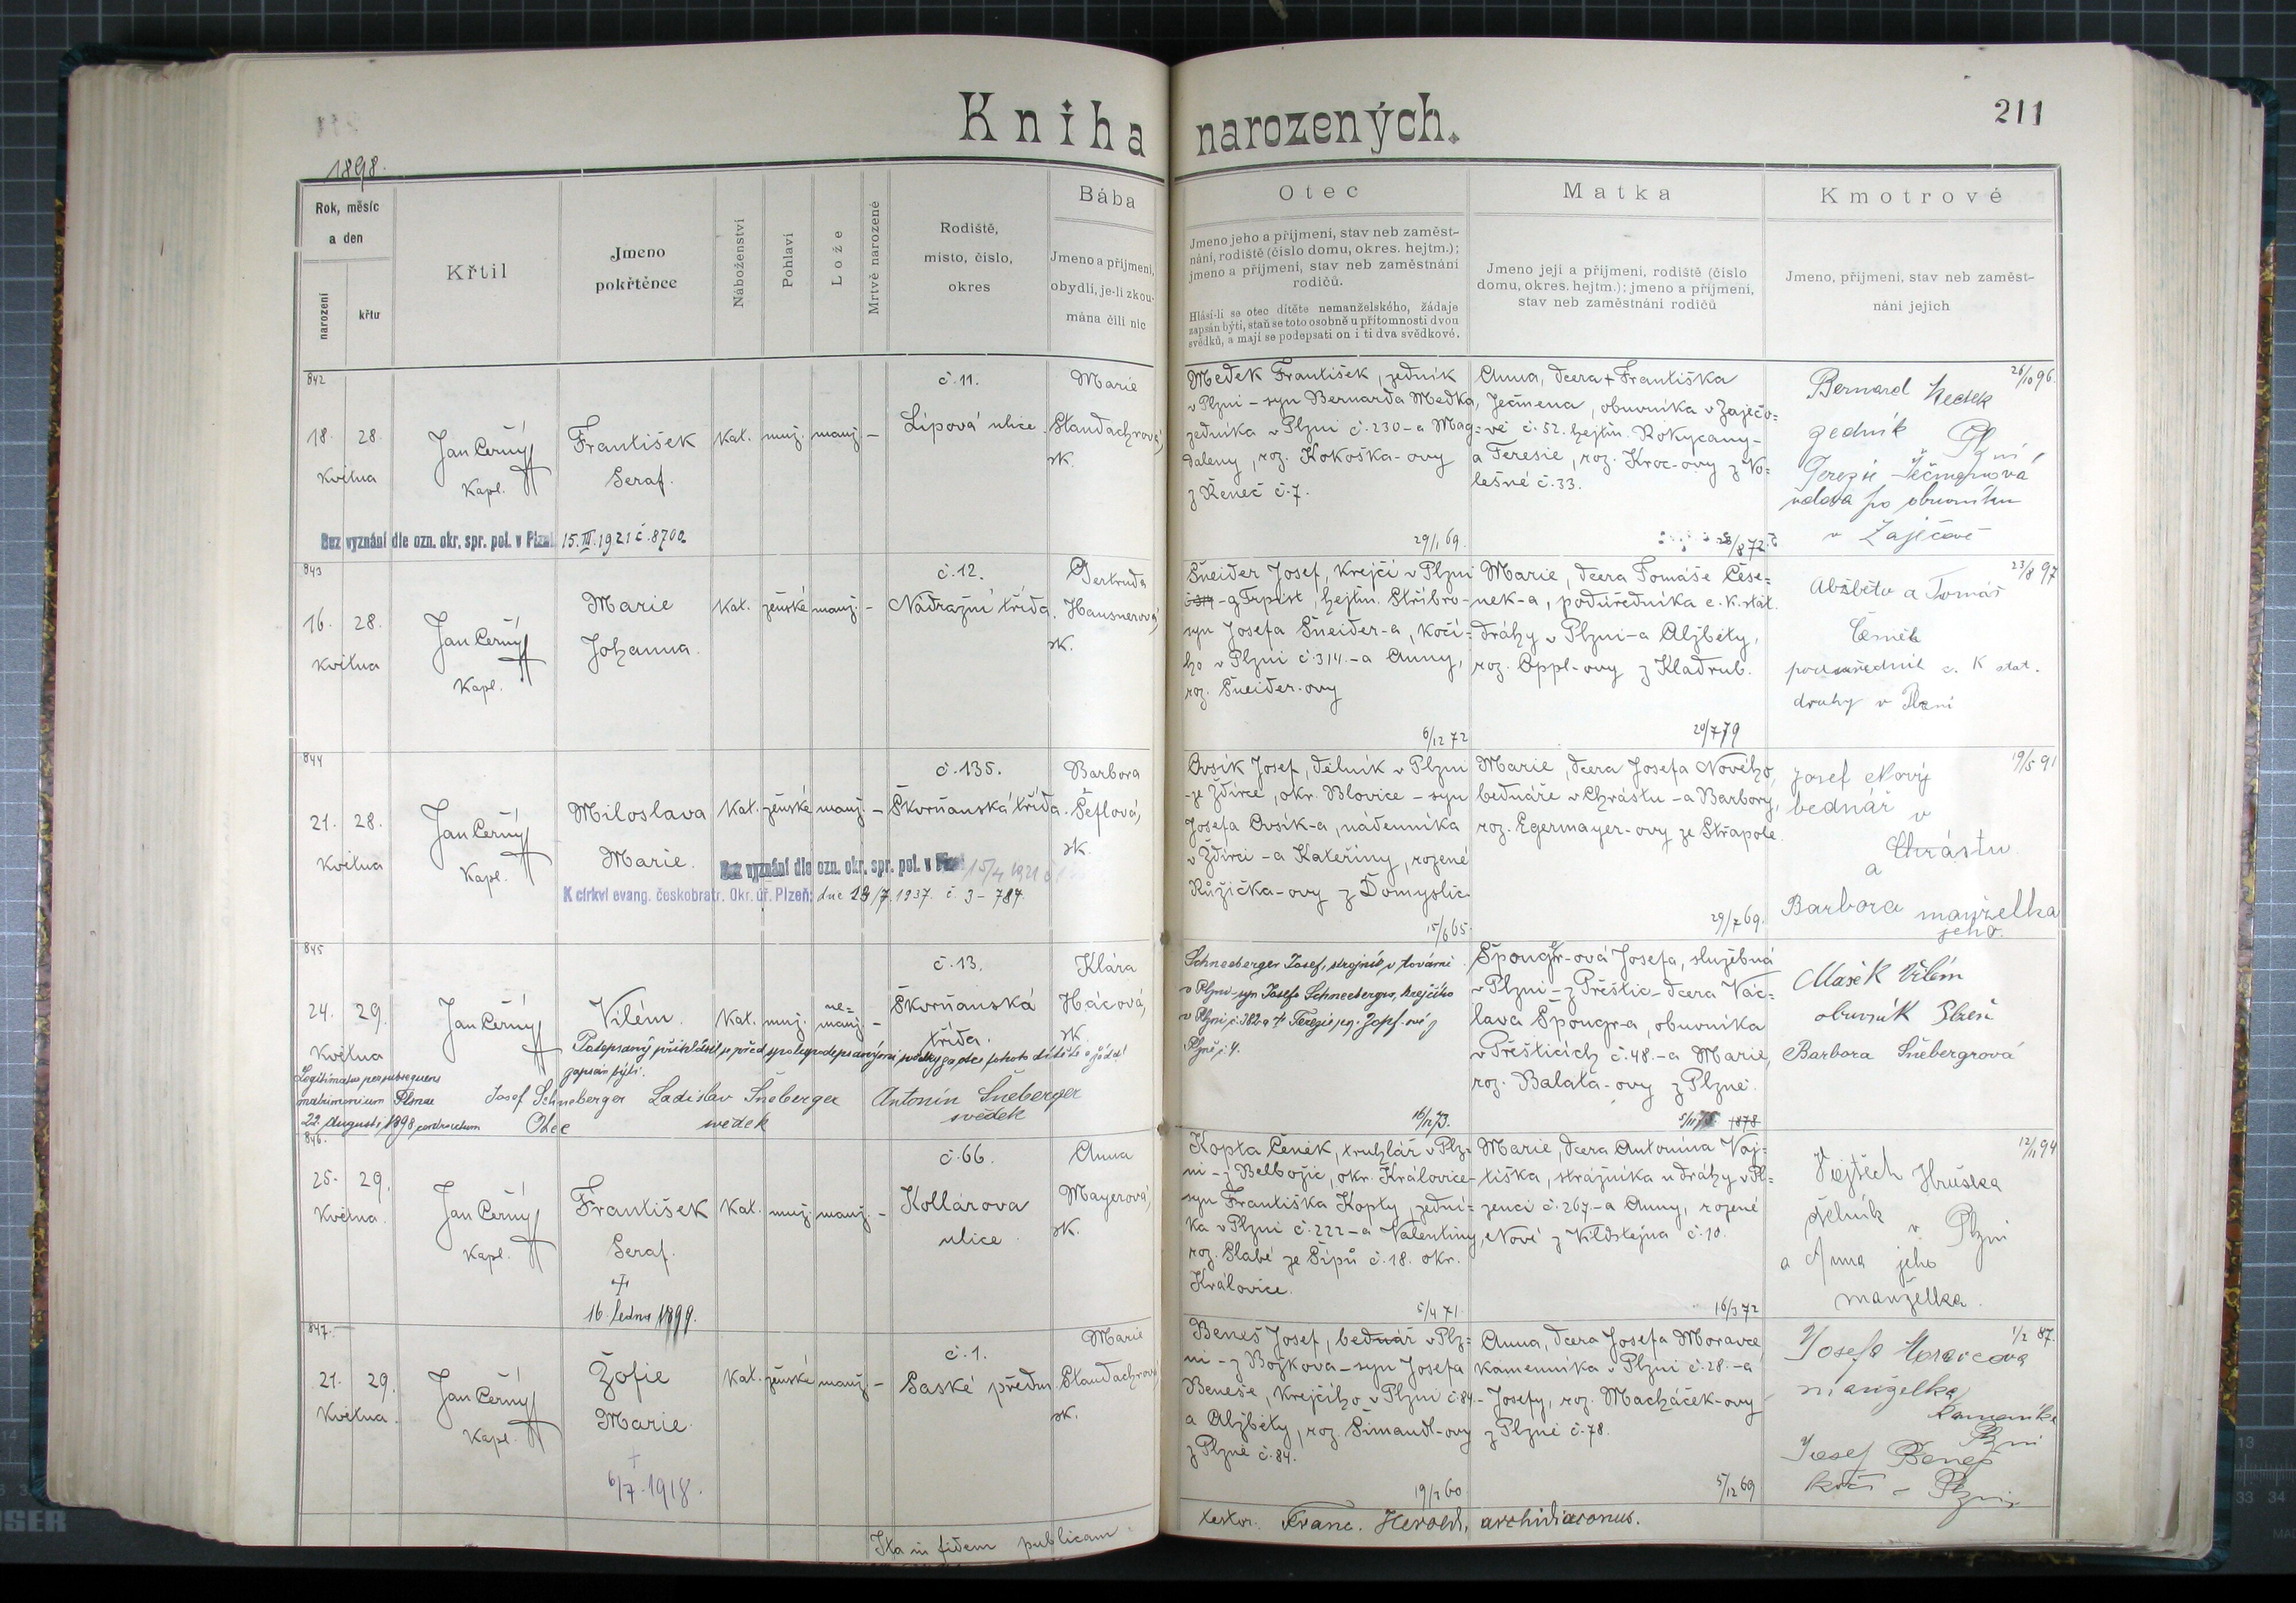 Kniha narozených.
211
1898.
Rok, měsíc
a den
narození
křtu
Křtil
Jmeno
pokřtěnce
Náboženství
Pohlaví
Lože
Mrtvě narozené
Rodiště,
místo, číslo,
okres
Bába
Jmeno a příjmení,
obydlí, je-li zkou-
mána čili nic
Otec
Jmeno jeho a příjmení, stav neb zaměst-
nání, rodiště (číslo domu, okres. hejtm.);
jmeno a příjmení, stav neb zaměstnání
rodičů.
Hlásí-li se otec dítěte nemanželského, žádaje
zapsán býti, staň se toto osobně u přítomnosti dvou
svědků, a mají se podepsati on i ti dva svědkové.
Matka
Jmeno její a příjmení, rodiště (číslo
domu, okres. hejtm.); jmeno a příjmení,
stav neb zaměstnání rodičů
Kmotrové
Jmeno, příjmení, stav neb zaměst-
nání jejich
842
18. 28.
Května
Jan Černý
Kapl.
František
Seraf.
Kat. muž. manž. –
č. 11.
Lípová ulice
Marie
Staudachrová,
zk.
Bez vyznání dle ozn. okr. spr. pol. v Plzni 15.III.1921 č. 8700
Medek František, zedník
v Plzni – syn Bernarda Medka,
zedníka v Plzni č. 230 – a Mag=
daleny, roz. Kokoška-ovy
z Řeneč č. 7.
29/1 69.
Anna, dcera + Františka
Ječmena, obuvníka v Zaječo=
vě č. 52. hejtm. Rokycany –
a Teresie, roz. Kroc-ovy z Vo=
lešné č. 33.
28/8 72.
26/10 96.
Bernard Medek
zedník Plzni
Terezie Ječmenová
vdova po obuvníku
v Zaječově
843
16. 28.
Května
Jan Černý
Kapl.
Marie
Johanna.
Kat. ženské manž. –
č. 12.
Nádražní třída.
Gertruda
Hausnerová,
zk.
Šneider Josef, krejčí v Plzni
č 314 – z Trpist, hejtm. Stříbro –
syn Josefa Šneider-a, kočí=
ho v Plzni č. 314. – a Anny,
roz. Šneider-ovy
6/12 72
Marie, dcera Tomáše Čése=
nek-a, podúředníka c. k. stát.
dráhy v Plzni – a Alžběty,
roz. Appl-ovy z Kladrub.
20/7 79
23/8 97
Alžběta a Tomáš
podúředník c. K stat.
drahy v Plzni
844
21. 28.
Května
Jan Černý
Kapl.
Miloslava
Marie.
Kat. ženské manž. –
č. 135.
Škvrňanská třída.
Barbora
Šeflová,
zk.
Bez vyznání dle ozn. okr. spr. pol. v Plzni 15/4 1921 č
K církvi evang. českobratr. Okr. úř. Plzeň: dne 28/7. 1937. č. 3 – 784.
Ovsík Josef, dělník v Plzni
– ze Ždírce, okr. Blovice – syn
Josefa Ovsík-a, nádenníka
v Ždírci – a Kateřiny, rozené
Růžička-ovy z Domyslic.
15/6 65.
Marie, dcera Josefa Nového,
bednáře v Chrástu – a Barbory,
roz. Egermayer-ovy ze Střapole.
29/7 69.
19/5 91
Josef Nový
bednář v
Chrástu
a
Barbora manželka
jeho.
845
24. 29.
Května
Jan Černý
Vilém.
Kat. muž. ne=
manž. –
č. 13.
Škvrňanská
třída.
Klára
Hácová,
zk.
Podepsaný přihlásil se před spolupodepsanými svědky za otce tohoto dítěte a žádal
zapsán býti.
Legitimatus per subsequens
matrimonium Plsnae
22. Augusti 1898 contractum
Josef Schneberger Ladislav Šneberger Antonín Šneberger
Otec svědek svědek
Schneeberger Josef, strojník v továrni
v Plzni – syn Josefa Schneebergra, krejčího
v Plzni č. 382 a + Terezie roz. Zopf-ové z
Plzně č. 4.
16/12 73.
Špougr-ová Josefa, služebná
v Plzni – z Přeštic – dcera Vác=
lava Špougr-a, obuvníka
v Přešticích č. 48. – a Marie,
roz. Balata-ovy z Plzně.
1878
Mašek Vilém
obuvník Plzeň
Barbora Šnebergrová
846.
25. 29.
Května.
Jan Černý
Kapl.
František
Seraf.
+
16. ledna 1899.
Kat. muž. manž. –
č. 66.
Kollárova
ulice.
Anna
Mayerová,
zk.
Kopta Čeněk, truhlář v Plz=
ni – z Bělbožic, okr. Královice –
syn Františka Kopty, zední=
ka v Plzni č. 222 – a Valentiny,
roz. Slabé ze Šípů č. 18. okr.
Královice.
5/4 71.
Marie, dcera Antonína Voj=
tíška, strážníka u dráhy v Pl=
zenci č. 267. – a Anny, rozené
Nové z Vildštejna č. 10.
16/3 72
12/11 94
Vojtěch Hruška
dělník v Plzni
a Anna jeho
manželka.
847.
21. 29.
Května.
Jan Černý
Kapl.
Žofie
Marie.
+
6/7. 1918.
Kat. ženské manž. –
č. 1.
Saské předm.
Marie
Staudachrová,
zk.
Beneš Josef, bednář v Plz=
ni – z Bojkova – syn Josefa
Beneše, krejčího v Plzni č 84. –
a Alžběty, roz. Šimandl-ovy
z Plzně č. 84.
19/3 60
Anna, dcera Josefa Moravce
kamenníka v Plzni č. 28. – a
Josefy, roz. Macháček-ovy
z Plzně č. 78.
5/12 69
1/2 87.
Josefa Moravcova
manželka
Kameníka
Plzni
Josef Beneš
kočí – Plzni
Ita in fidem publicam testor: Franc. Herold, archidiaconus.